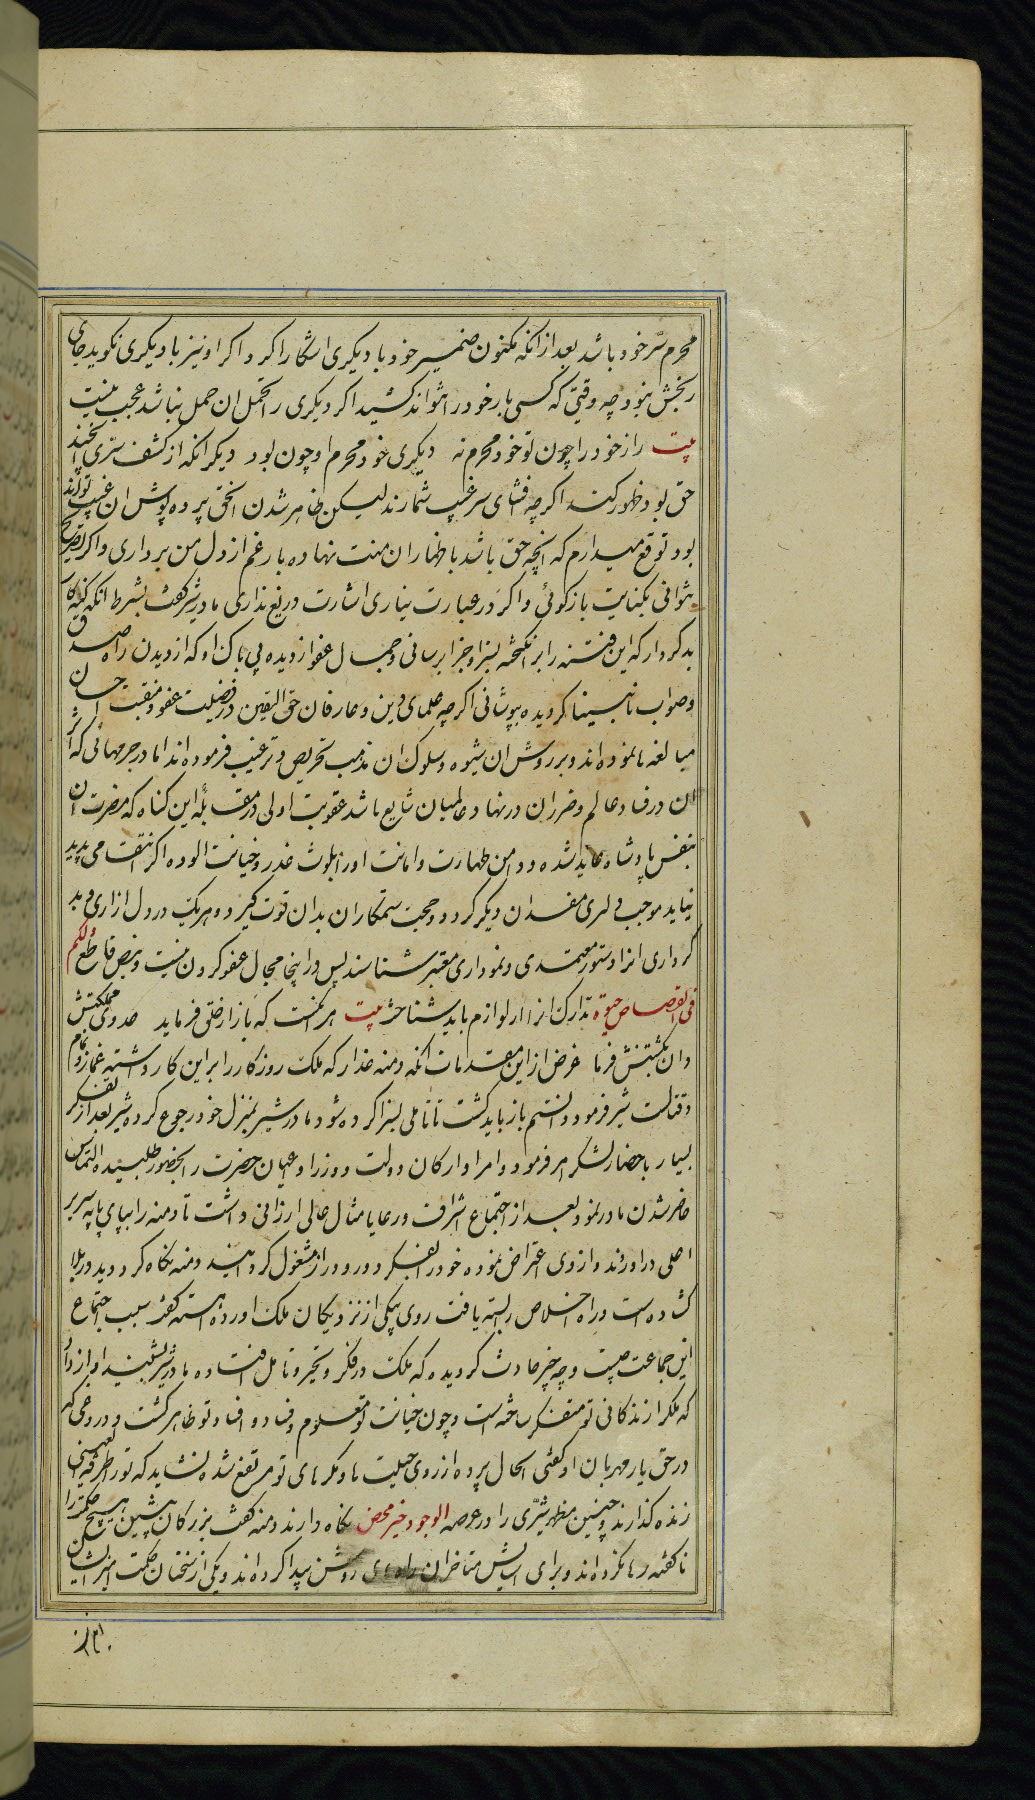 محرم سّر خود باشد بعد از انکه مکنون ضمیر خود با دیکری اشکارا کرد و اکر او نیز با دیکری نکوید جای
رنجش نبود چه وقتی که کسی بار خود را نتواند کشید اکر دیکری را تحمل ان حمل نباشد عجب نیست
بیت راز خود را چون تو خود محرم نه دیکری خود محرم او چون بود دیکر انکه از کشف ستری
حق بود ظهور کند اکرچه افشای سر عیب شمارند لیکن ظاهر شدن الحق پرده پوش ان عیب تواند
بود توقع میدارم که انچه حق باشد باظهار ان منت نهاده بار غم از دل من برداری و اکر بتصریح
نتوانی بکنایت بازکوئی و اکر در عبارت نیاری اشارت دریغ نداری مادر شیر کفت بشرط انکه
بدکردار که این فتنه را برانکیخته بسزا و جزا برسانی و جمال عفو از دیده بی باک او که از دیدن راه صدق
و صواب نابینا کردیده بپوشانی اکرچه علمای دین و عارفان حق الیقین در فضیلت عفو و منقبت احسان
مبالغه نموده اند و بر روش ان شیوه و سلوک ان مذهب تحریص و ترغیب فرموده اند اما در جرمهائی که اثر
ان در فساد عالم و ضرر ان در نهاد عالمیان شایع باشد عقوبت اولی در مقابله این کناه که مضرت ان
بنفس پادشاه عاید شده و دامن طهارت و امانت او را بلوث غدر و خیانت الوده اکر انتقامی پدید
نیاید موجب دلیری مفسدان دیکر کردد و حجت ستمکاران بدان قوت کیرد و هر یک در دل ازاری و بد
کرداری انرا دستور معتمدی و نموداری معتبر شناسند پس در اینجا مجال عفو کردن نیست و بنص قاطع ولکم
فی القصاص حیوة تدارک انرا از لوازم باید شناخت بیت هر کست که بازار خلق فرماید عدوی مملکتش
دان بکشتنش فرما غرض از این مقدمات انکه دمنه غدار که ملک روزکار را بر این کار داشته غماز و نمام
و قتالست شیر فرمود دانستم باز باید کشت تا تاملی بسزا کرده شود مادر شیر بمنزل خود رجوع کرده شیر بعد از تفکر
بسیار باحضار لشکر امر فرمود و امرا و ارکان دولت و وزرا و اعیان حضرت را بحضور طلبیده التماس
حاضر شدن مادر نمود بعد از اجتماع اشراف و رعایا مثال عالی ارزانی داشت تا دمنه را بپای پایه سریر
اعلی دراورند و از وی اعتراض نموده خود را بفکر دور و دراز مشغول کردانید دمنه نکاه کرد و دید در بلا
کشاده است و راه خلاص بسته یافت روی بیکی از نزدیکان ملک اورده اهسته کفت سبب اجتماع
این جماعت چیست و چه چیز حادث کردیده که ملک در فکر و تحیر و تامل افتاده مادر شیر بشنید اواز داد
که ملک را زندکانی تو متفکر ساخته است و چون خیانت تو معلوم و فساد و افساد تو ظاهر کشت و دروغی که
در حق یار مهربان او کفتی الحال پرده از روی حیلت ها و مکرهای تو مرتفع شد نشاید که تو را طرفة العینی
زنده کذارند و چنین مظهر شرّی را در عرصه الوجود خیر محض نکاه دارند دمنه کفت بزرکان پیشین هیچ حکمت را
ناکفته رها نکرده اند و برای اسایش متاخران راههای روشن پیدا کرده اند و یکی از سخنان حکمت امیز ایشان